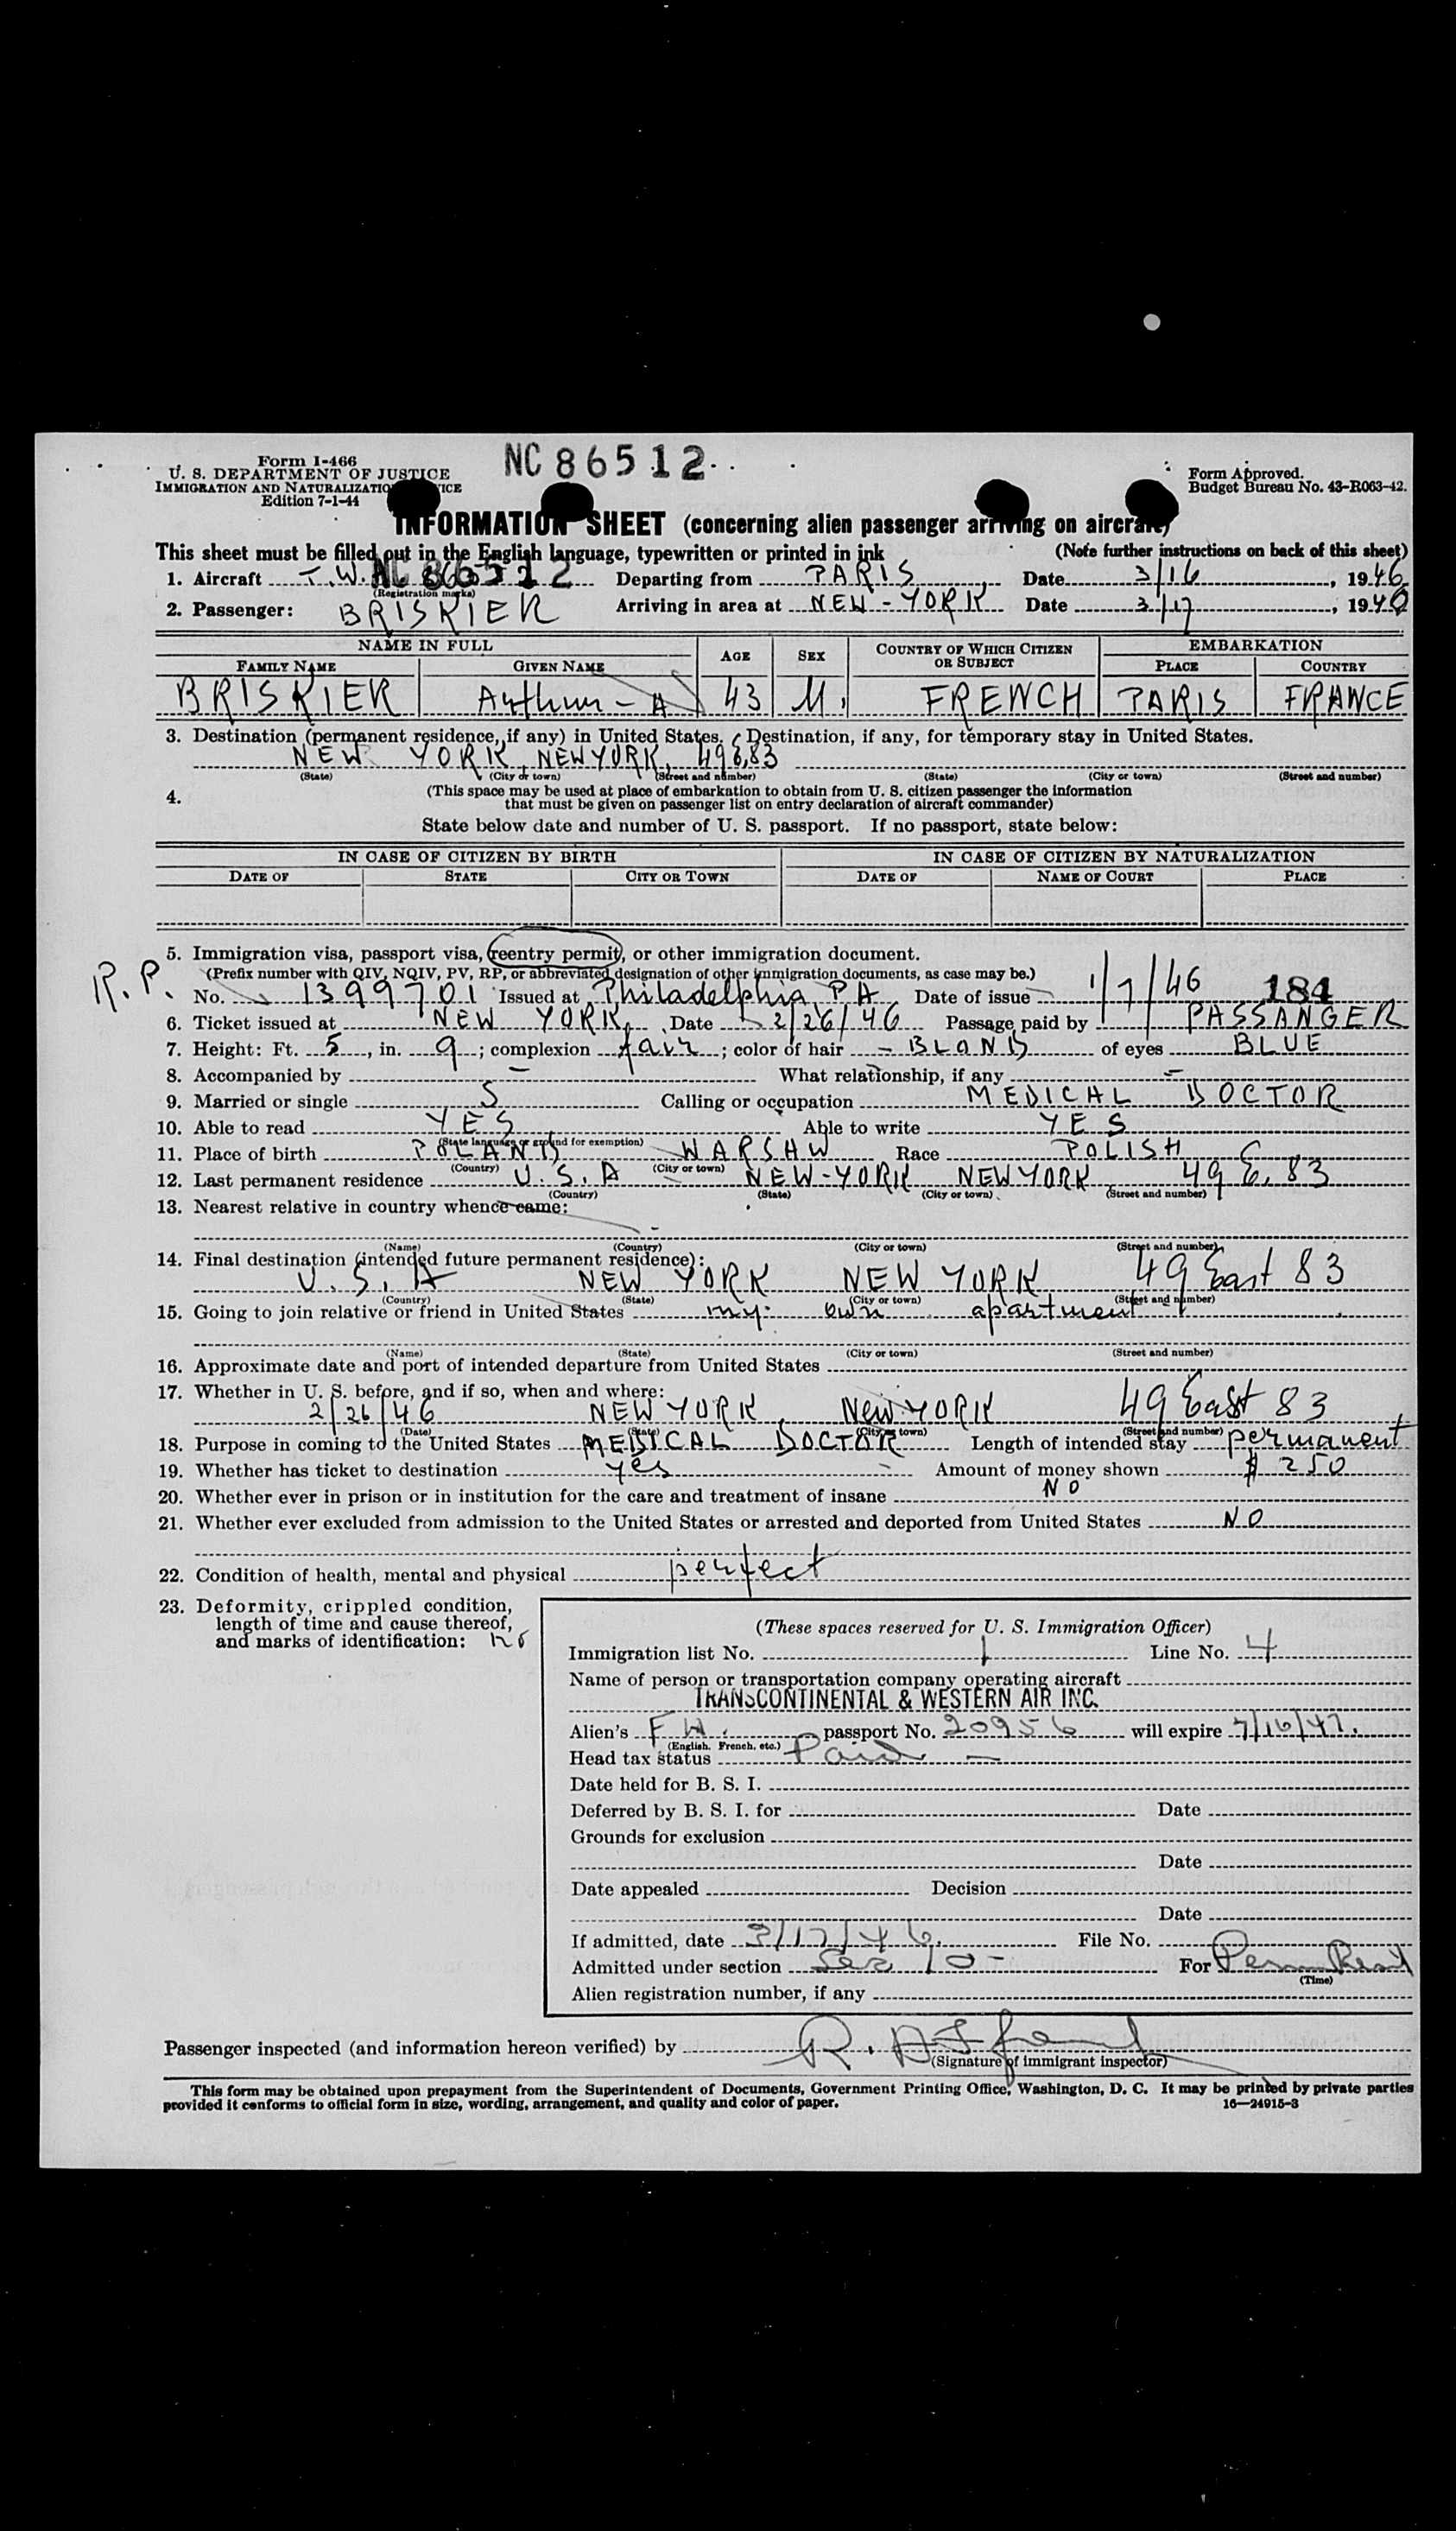 Form I-466
U. S. DEPARTMENT OF JUSTICE
IMMIGRATION AND NATURALIZATION SERVICE
Edition 7-1-44
NC 86512
Form Approved.
Budget Bureau No. 43-R063-42.
INFORMATION SHEET (concerning alien passenger arriving on aircraft)
This sheet must be filled out in the English language, typewritten or printed in ink (Note further instructions on back of this sheet)
1. Aircraft T.W. NC 86512 Departing from PARIS Date 3/16, 1946
(Registration marks)
2. Passenger: BRISKIER Arriving in area at NEW-YORK Date 3/17, 1946
NAME IN FULL AGE SEX COUNTRY OF WHICH CITIZEN OR SUBJECT EMBARKATION
FAMILY NAME GIVEN NAME PLACE COUNTRY
BRISKIER Arthur - A 43 M. FRENCH PARIS FRANCE
3. Destination (permanent residence, if any) in United States. Destination, if any, for temporary stay in United States.
NEW YORK, NEW YORK, 49 E, 83
(State) (City or town) (Street and number) (State) (City or town) (Street and number)
4. (This space may be used at place of embarkation to obtain from U. S. citizen passenger the information
that must be given on passenger list on entry declaration of aircraft commander)
State below date and number of U. S. passport. If no passport, state below:
IN CASE OF CITIZEN BY BIRTH IN CASE OF CITIZEN BY NATURALIZATION
DATE OF STATE CITY OR TOWN DATE OF NAME OF COURT PLACE
5. Immigration visa, passport visa, reentry permit, or other immigration document.
R.P. (Prefix number with QIV, NQIV, PV, RP, or abbreviated designation of other immigration documents, as case may be.)
No. 1399701 Issued at Philadelphia, PA Date of issue 1/7/46 184
6. Ticket issued at NEW YORK, Date 2/26/46 Passage paid by PASSANGER
7. Height: Ft. 5, in. 9; complexion fair; color of hair - BLOND of eyes BLUE
8. Accompanied by - What relationship, if any -
9. Married or single S Calling or occupation MEDICAL DOCTOR
10. Able to read YES Able to write YES
(State language or ground for exemption)
11. Place of birth POLAND WARSHW Race POLISH
(Country) (City or town)
12. Last permanent residence U.S.A NEW-YORK NEW YORK 49 E, 83
(Country) (State) (City or town) (Street and number)
13. Nearest relative in country whence came:
-
(Name) (Country) (City or town) (Street and number)
14. Final destination (intended future permanent residence):
U.S.A NEW YORK NEW YORK 49 East 83
(Country) (State) (City or town) (Street and number)
15. Going to join relative or friend in United States my own apartment
(Name) (State) (City or town) (Street and number)
16. Approximate date and port of intended departure from United States
17. Whether in U. S. before, and if so, when and where:
2/26/46 NEW YORK, New YORK 49 East 83
(Date) (State) (City or town) (Street and number)
18. Purpose in coming to the United States MEDICAL DOCTOR Length of intended stay permanent
19. Whether has ticket to destination yes Amount of money shown $ 250
20. Whether ever in prison or in institution for the care and treatment of insane NO
21. Whether ever excluded from admission to the United States or arrested and deported from United States NO
22. Condition of health, mental and physical perfect
23. Deformity, crippled condition,
length of time and cause thereof,
and marks of identification: no
(These spaces reserved for U. S. Immigration Officer)
Immigration list No. 1 Line No. 4
Name of person or transportation company operating aircraft
TRANSCONTINENTAL & WESTERN AIR INC.
Alien's passport No. 20956 will expire 7/16/47.
(English, French, etc.)
Head tax status Paid -
Date held for B. S. I.
Deferred by B. S. I. for Date
Grounds for exclusion
Date
Date appealed Decision
Date
If admitted, date 3/17/46. File No.
Admitted under section Sec 10 - For Perm Resid
(Time)
Alien registration number, if any
Passenger inspected (and information hereon verified) by
(Signature of immigrant inspector)
This form may be obtained upon prepayment from the Superintendent of Documents, Government Printing Office, Washington, D. C. It may be printed by private parties
provided it conforms to official form in size, wording, arrangement, and quality and color of paper. 16—24915-3